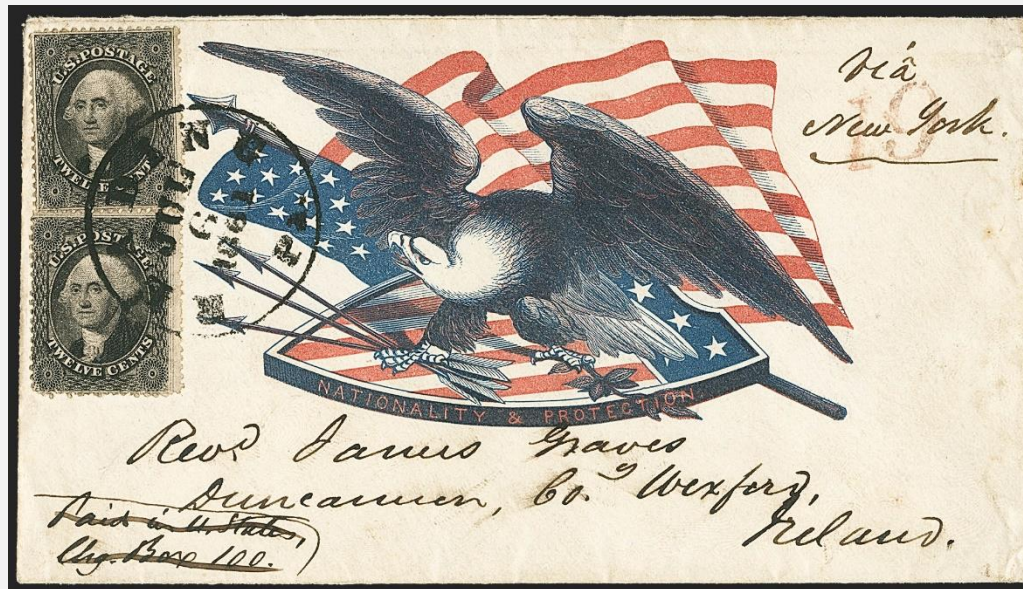 U.S. POSTAGE
TWELVE CENTS
U.S. POSTAGE
TWELVE CENTS
JUN
6
1861
PA
19
Viâ
New York.
NATIONALITY & PROTECTION
Revd James Graves
Duncannon, Coy Wexford,
Ireland.
Paid in U. States,
Chg. Box 100.